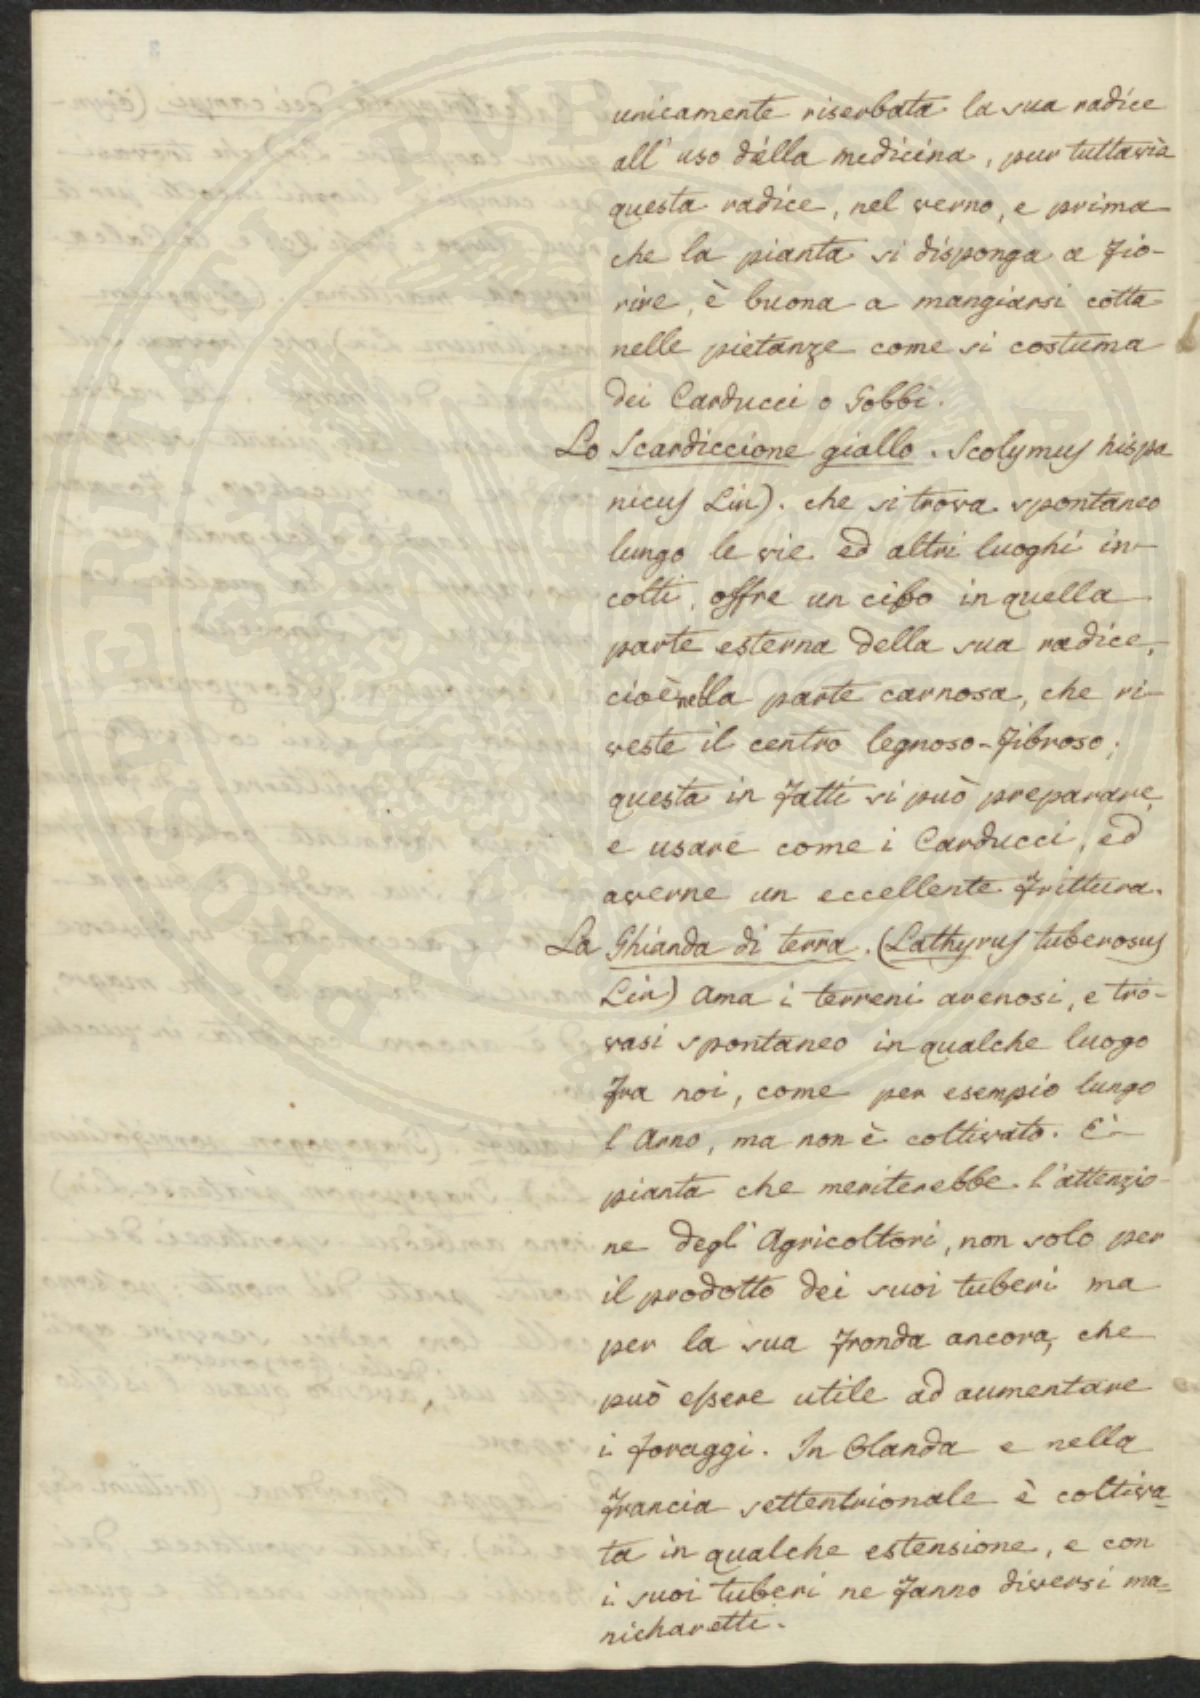 unicamente riserbata la sua radice
all' uso della medicina, pur tuttavia
questa radice, nel verno, e prima
che la pianta si disponga a fio-
rire, è buona a mangiarsi cotta
nelle pietanze come si costuma
dei Carducci o Gobbi.
Lo Scardiccione giallo. Scolymus hispa
nicus Lin). che si trova spontaneo
lungo le vie ed altri luoghi in-
colti, offre un cibo in quella
parte esterna della sua radice,
cioè nella parte carnosa, che ri-
veste il centro legnoso-fibroso;
questa in fatti si può preparare,
e usare come i Carducci, ed
averne un eccellente frittura.
La Ghianda di terra. (Lathyrus tuberosus
Lin) Ama i terreni arenosi, e tro-
vasi spontaneo in qualche luogo
fra noi, come per esempio lungo
l'Arno, ma non è coltivato. È
pianta che meriterebbe l'attenzio-
ne degli Agricoltori, non solo per
il prodotto dei suoi tuberi ma
per la sua fronda ancora, che
può essere utile ad aumentare
i foraggi. In Olanda e nella
Francia settentrionale è coltiva=
ta in qualche estensione, e con
i suoi tuberi ne fanno diversi ma=
nicharetti.